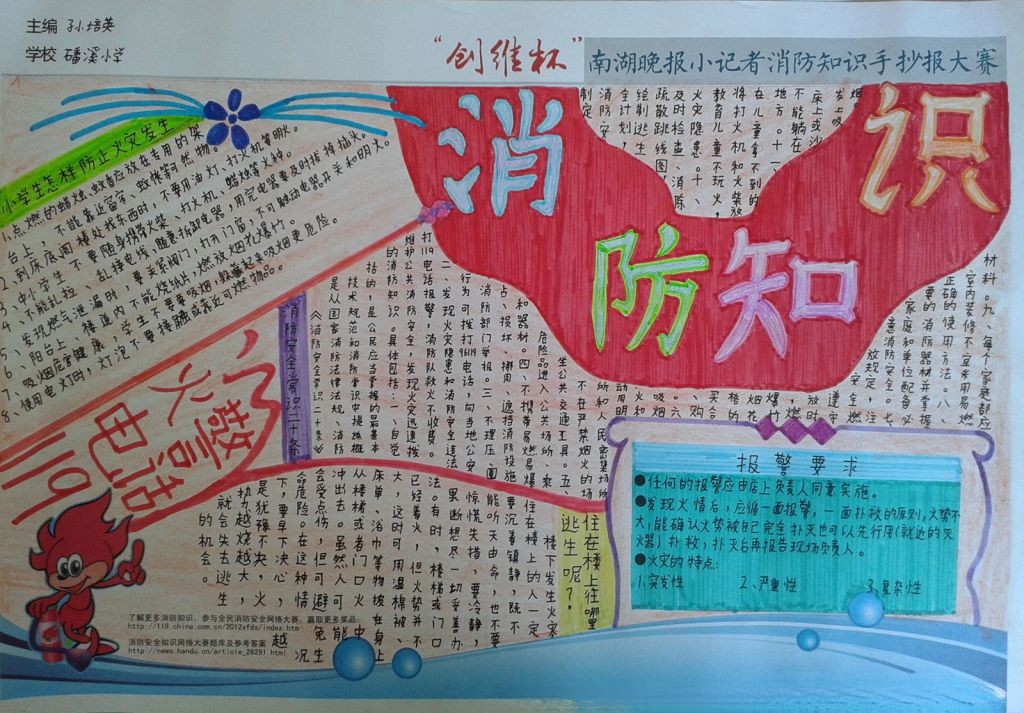 主编 孙培英
学校 磻溪小学
“创维杯”
南湖晚报小记者消防知识手抄报大赛
消防知识
小学生怎样防止火灾发生
1、点燃的蜡烛、蚊香应放在专用的架
台上，不能靠近窗帘、蚊帐等可燃物。
2、到床底、阁楼处找东西时，不要用油灯、打火机等明火。
3、中小学生不要随身携带火柴、打火机、蜡烛等火种。
4、不能乱拉、乱接电线，随意拆卸电器，用完电器要及时拔掉插头。
5、发现燃气泄漏时，要关紧阀门，打开门窗，不可触动电器开关和明火。
6、阳台上、楼道内不能烧纸片，燃放烟花爆竹。
7、吸烟危害健康，学生不要吸烟，躲藏起来吸烟更危险。
8、使用电灯时，灯泡不要接触或靠近可燃物品。
火警
电话
119
消防安全常识二十条
《消防安全常识二十条》
是从国家消防法律法规、消防
技术规范和消防常识中提炼概
括的，是公民应当掌握的最基本
的消防知识。具体包括：一、自觉
维护公共消防安全，发现火灾迅速拨
打119电话报警，消防队救火不收费。
二、发现火灾隐患和消防安全违法
行为可拨打96119电话，向当地公安
消防部门举报。三、不埋压、圈
占、损坏、挪用、遮挡消防设施
和器材。四、不携带易燃易爆
危险品进入公共场所、乘
坐公共交通工具。五、
不在严禁烟火的场
所
动用明
火
吸烟
六、购
买合
格的
烟花
爆竹
燃
放时
遵守
安
放规定，注
意消防安全。七、
家庭和单位配备必
要的消防器材并掌握
正确的使用方法。八、
室内装修不宜采用易燃
材料。九、每个家庭都应
制定
消防安
全计划，
绘制逃生
疏散路线图，
及时检查、消除
火灾隐患。十、
教育儿童不玩火，
将打火机和火柴放
在儿童拿不到的
地方。十一、
不能躺在
床上或沙
发上吸
烟。
住在楼上往哪里
逃生呢？
楼下发生火灾
住在楼上的人一定
要沉着镇静，既不
能听天由命，也不要
惊慌失措，要冷静，
果断想尽一切妥善办
法。有时，楼梯或门口
已经着火，但火势并不
大，这时可用湿棉被、
床单、浴巾等物披在身上
从楼梯或者门口火中
冲出去。虽然人可能
会受点伤，但可避免
命危险。在这种情况
下，要早下决心，越
是犹豫不决，火
势越烧越大，
就会失去逃生
的机会。
报警要求
●任何的报警应由店上负责人同意实施。
●发现火情后，应循一面报警，一面扑救的原则，火势不
大，能确认火势被自己完全扑灭也可以先行用（就近的灭
火器）扑救，扑灭后再报告现场负责人。
●火灾的特点：
1.突发性 2、严重性 3、复杂性
了解更多消防知识，参与全民消防安全网络大赛，赢取更多奖品：
http://119.china.com.cn/2012xfds/index.htm
消防安全知识网络大赛题库及参考答案
http://news.handu.cn/article_26291.html